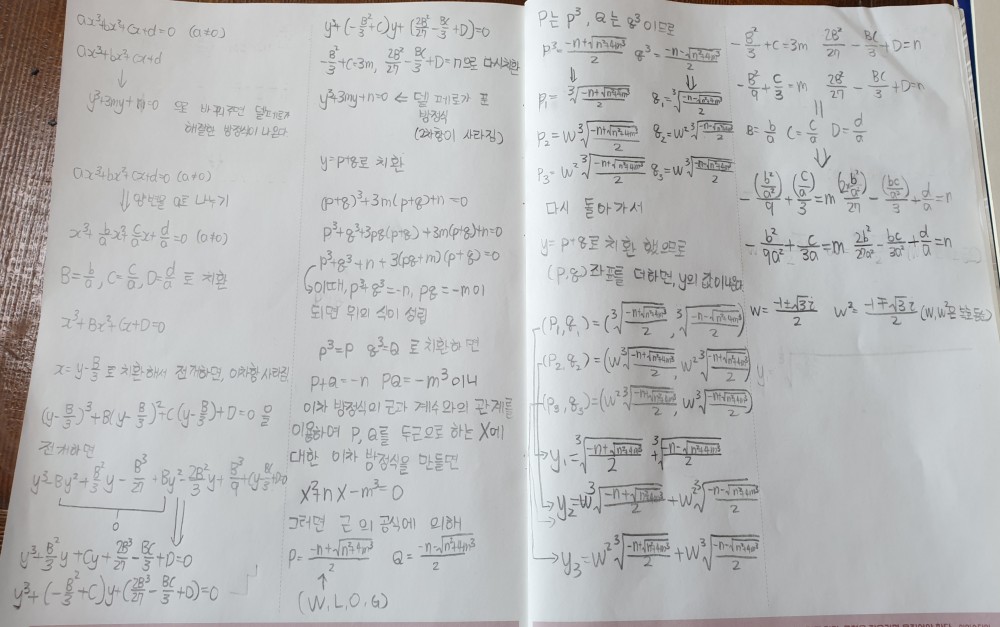 ax³+bx²+cx+d=0 (a≠0)
ax³+bx²+cx+d
↓
y³+3my+n=0 으로 바꿔주면 델페로가
해결한 방정식이 나온다
ax³+bx²+cx+d=0 (a≠0)
⇓ 양변을 a로 나누기
x³+b/a x²+c/a x+d/a=0 (a≠0)
B=b/a, C=c/a, D=d/a 로 치환
x³+Bx²+Cx+D=0
x=y-B/3 로 치환해서 전개하면, 이차항 사라짐
(y-B/3)³+B(y-B/3)²+C(y-B/3)+D=0 을
전개하면
y³-By²+B²/3 y-B³/27+By²-2B²/3 y+B³/9+Cy-BC/3+D=0
0
y³+B²/3 y+Cy+2B³/27-BC/3+D=0
y³+(-B²/3+C)y+(2B³/27-BC/3+D)=0
y³+(-B²/3+C)y+(2B³/27-BC/3+D)=0
-B²/3+C=3m, 2B³/27-BC/3+D=n으로 다시치환
y³+3my+n=0 ← 델 페로가 푼
방정식
(2차항이 사라짐)
y=p+q로 치환
(p+q)³+3m(p+q)+n=0
p³+q³+3pq(p+q)+3m(p+q)+n=0
p³+q³+n+3(pq+m)(p+q)=0
이때, p³+q³=-n, pq=-m이
되면 위의 식이 성립
p³=P q³=Q 로 치환하면
P+Q=-n PQ=-m³이니
이차 방정식의 근과 계수와의 관계를
이용하여 P, Q를 두근으로 하는 X에
대한 이차 방정식을 만들면
X²+nX-m³=0
그러면 근의 공식에 의해
P=(-n+√(n²+4m³))/2 Q=(-n-√(n²+4m³))/2
↑
(W,L,O,G)
P는 p³, Q는 q³이므로
p³=(-n+√(n²+4m³))/2 q³=(-n-√(n²+4m³))/2
⇓ ⇓
p₁=³√((-n+√(n²+4m³))/2) q₁=³√((-n-√(n²+4m³))/2)
p₂=w³√((-n+√(n²+4m³))/2) q₂=w²³√((-n-√(n²+4m³))/2)
p₃=w²³√((-n+√(n²+4m³))/2) q₃=w³√((-n-√(n²+4m³))/2)
다시 돌아가서
y=p+q로 치환 했으므로
(p,q)좌표를 더하면, y의 값이나온다
(p₁,q₁)=(³√((-n+√(n²+4m³))/2), ³√((-n-√(n²+4m³))/2))
(p₂,q₂)=(w³√((-n+√(n²+4m³))/2), w²³√((-n-√(n²+4m³))/2))
(p₃,q₃)=(w²³√((-n+√(n²+4m³))/2), w³√((-n-√(n²+4m³))/2))
y₁=³√((-n+√(n²+4m³))/2)+³√((-n-√(n²+4m³))/2)
y₂=w³√((-n+√(n²+4m³))/2)+w²³√((-n-√(n²+4m³))/2)
y₃=w²³√((-n+√(n²+4m³))/2)+w³√((-n-√(n²+4m³))/2)
-B²/3+C=3m 2B³/27-BC/3+D=n
-B²/9+C/3=m 2B³/27-BC/3+D=n
B=b/a C=c/a D=d/a
⇓
-(b²/a²)/9+(c/a)/3=m (2b³/a³)/27-(bc/a²)/3+d/a=n
-b²/9a²+c/3a=m 2b³/27a³-bc/3a²+d/a=n
w=(-1±√3i)/2 w²=(-1∓√3i)/2